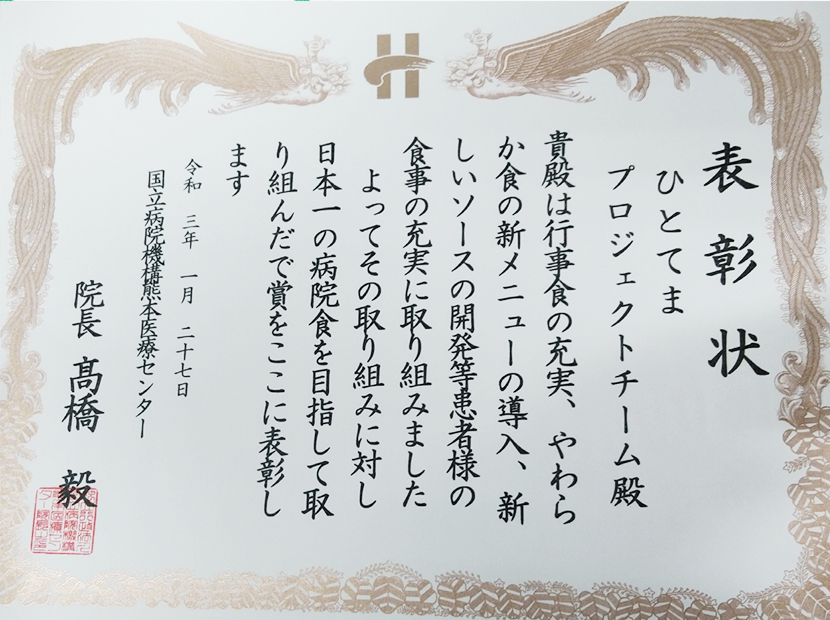 表彰状
ひとてま
プロジェクトチーム殿
貴殿は行事食の充実、やわら
か食の新メニューの導入、新
しいソースの開発等患者様の
食事の充実に取り組みました
よってその取り組みに対し
日本一の病院食を目指して取
り組んだで賞をここに表彰し
ます
令和 三年 一月 二十七日
国立病院機構熊本医療センター
院長 髙橋 毅